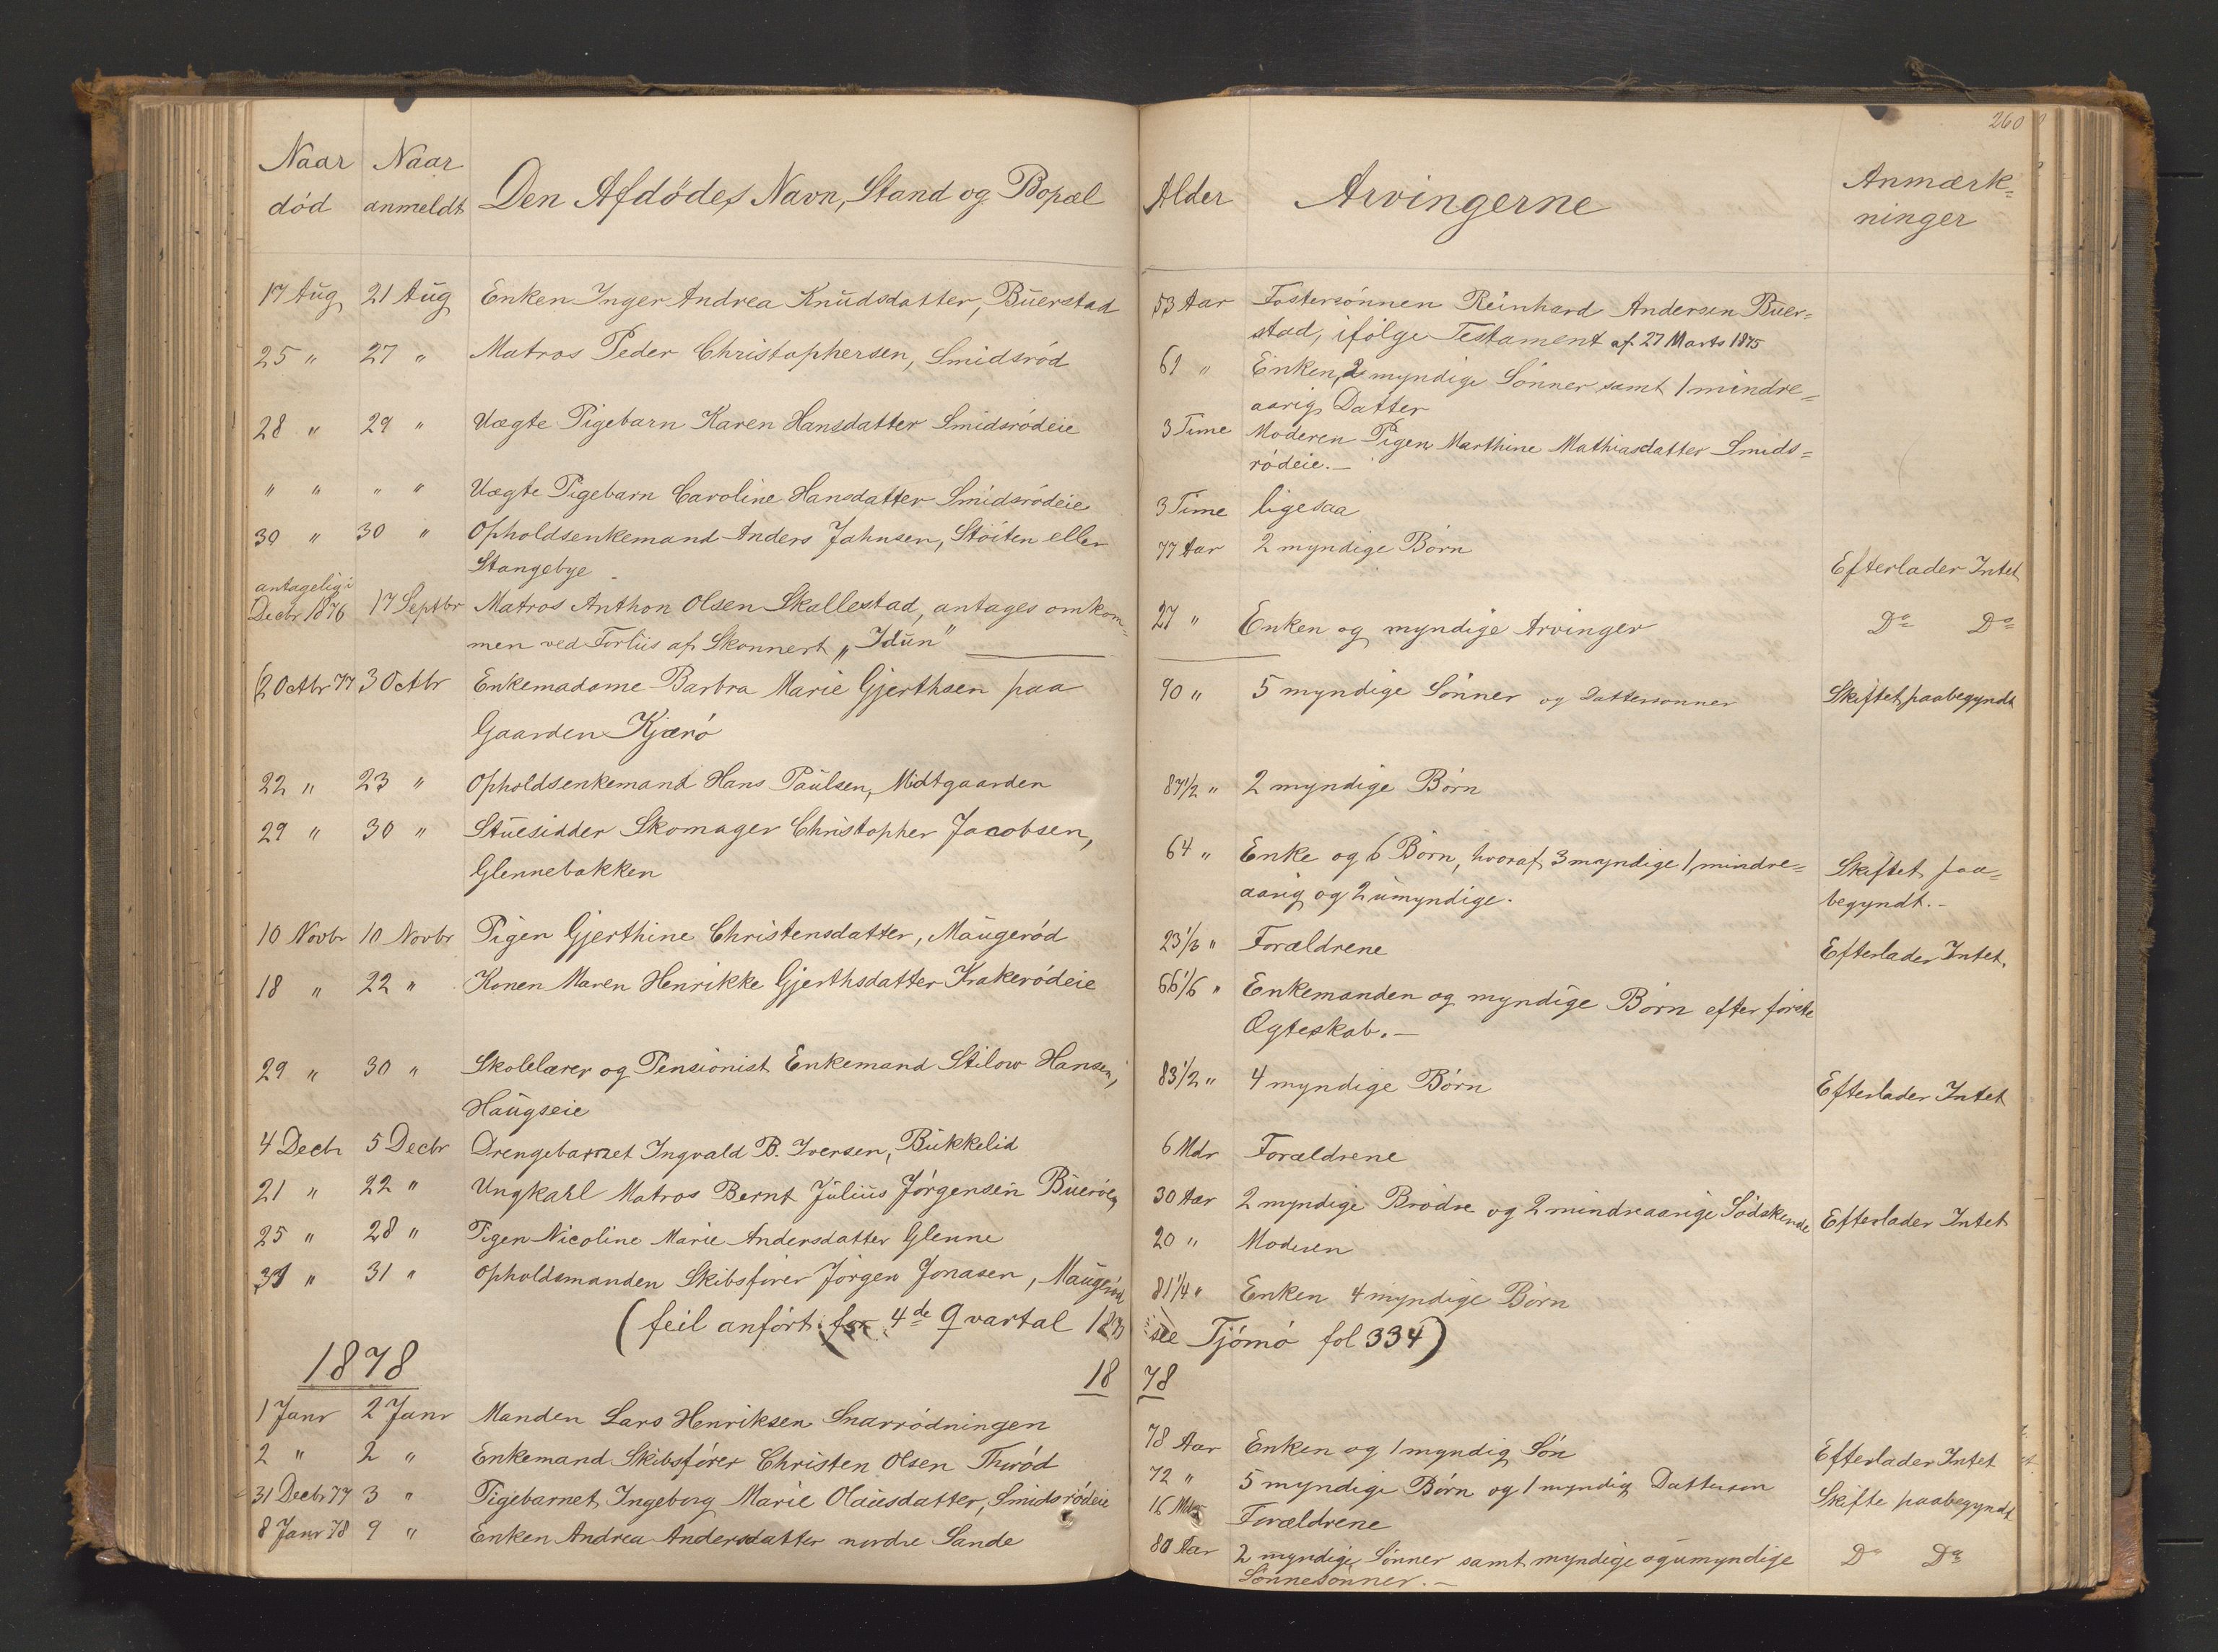 260
Naar Naar
død anmeldt Den Afdødes Navn, Stand og Bopæl
17 Aug 21 Aug Enken Inger Andrea Knudsdatter, Buerstad
25 " 27 " Matros Peder Christophersen, Smidsrød
28 " 29 " Uægte Pigebarn Karen Hansdatter Smidsrødeie
" " " " Uægte Pigebarn Caroline Hansdatter Smidsrødeie
30 " 30 " Opholdsenkemand Anders Jahnsen, Støiten eller
Stangebye
antagelig i
Decbr 1876 17 Septbr Matros Anthon Olsen Skallestad, antages omkom=
men ved Forliis af Skonnert „Idun"
2 Octbr 77 3 Octbr Enkemadame Barbra Marie Gjerthsen paa
Gaarden Kjærø
22 " 23 " Opholdsenkemand Hans Paulsen, Midtgaarden
29 " 30 " Stuesidder Skomager Christopher Jacobsen,
Glennebakken
10 Novbr 10 Novbr Pigen Gjerthine Christensdatter, Maugerød
18 " 22 " Konen Maren Henrikke Gjerthsdatter Krakerødeie
29 " 30 " Skolelærer og Pensionist Enkemand Stilow Hansen,
Haugseie
4 Decbr 5 Decbr Drengebarnet Ingvald B. Iversen, Bukkelid
21 " 22 " Ungkahl Matros Bernt Julius Jørgensen Buerøen
25 " 28 " Pigen Nicoline Marie Andersdatter Glenne
31 " 31 " Opholdsmanden Skibsfører Jørgen Jonasen, Maugerød
(feil anført: for 4de Qvartal
1878 18
1 Janr 2 Janr Manden Lars Henriksen Snarrødningen
2 " 2 " Enkemand Skibsfører Christen Olsen Thorød
31 Decbr 77 3 " Pigebarnet Ingeborg Marie Olausdatter, Smidsrødeie
8 Janr 78 9 " Enken Andrea Andersdatter nordre Sande
Alder Arvingerne Anmærk=
ninger
53 Aar Fostersønnen Reinhard Andersen Buer=
stad, ifølge Testament af 27 Marts 1875
69 " Enken, 2 myndige Sønner samt 1 mindre=
aarig Datter
3 Time Moderen Pigen Marthine Mathiasdatter Smids=
rødeie.—
3 Time ligesaa
77 Aar 2 myndige Børn Efterlader Intet
27 " Enken og myndige Arvinger Do Do
90 " 5 myndige Sønner og Dattersønner Skiftet paabegyndt
87 1/2 " 2 myndige Børn
64 " Enke og 6 Børn, hvoraf 3 myndige 1 mindre= Skiftet paa=
aarig og 2 umyndige. begyndt.-
23 1/3 " Forældrene Efterlader Intet.
66 1/6 " Enkemanden og myndige Børn efter første
Ægteskab.—
83 1/2 " 4 myndige Børn Efterlader Intet
6 Mdr Forældrene
30 Aar 2 myndige Brødre og 2 mindreaarige Sødskende Efterlader Intet
20 " Moderen
81 1/4 " Enken 4 myndige Børn
see Tjømø fol 334)
78
78 Aar Enken og 1 myndig Søn Efterlader Intet
72 " 5 myndige Børn og 1 myndig Dattersøn Skifte paabegyndt
16 Mdr Forældrene
80 Aar 2 myndige Sønner samt myndige og umyndige Do Do
Sønnesønner.—